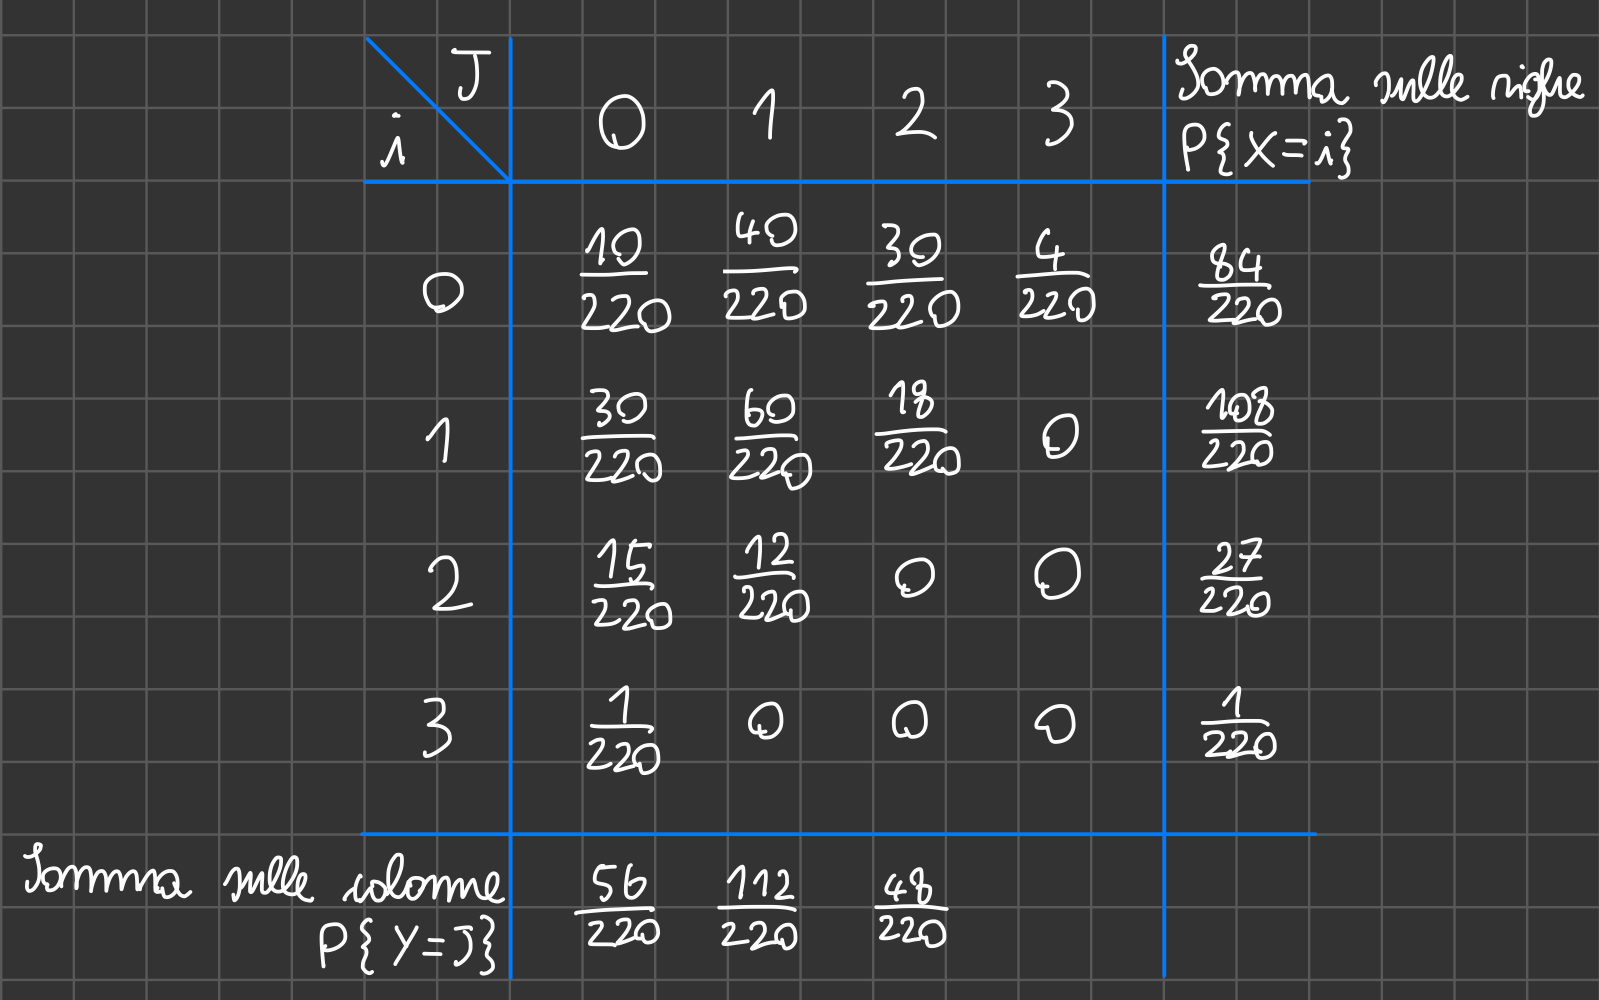 J
i
0 1 2 3
Somma sulle righe
P{X=i}
0 10/220 40/220 30/220 4/220 84/220
1 30/220 60/220 18/220 0 108/220
2 15/220 12/220 0 0 27/220
3 1/220 0 0 0 1/220
Somma sulle colonne
P{Y=J}
56/220 112/220 48/220